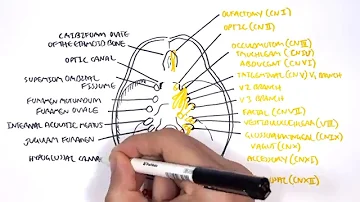 CRIBIFORM PLATE
OF THE ETHMOID BONE
OPTIC CANAL
SUPERIOR ORBITAL
FISSURE
FORAMEN ROTUNDUM
FORAMEN OVALE
INTERNAL ACOUSTIC MEATUS
JUGULAR FORAMEN
HYPOGLOSSAL CANAL
OLFACTORY (CN I)
OPTIC (CN II)
OCCULOMOTOR (CN III)
TROCHLEAR (CN IV)
ABDUCENT (CN VI)
TRIGEMINAL (CN V) V1 BRANCH
V2 BRANCH
V3 BRANCH
FACIAL (CN VII)
VESTIBULOCOCHLEAR (VIII)
GLOSSOPHARYNGEAL (CN IX)
VAGUS (CN X)
ACCESSORY (CN XI)
(CN XII)